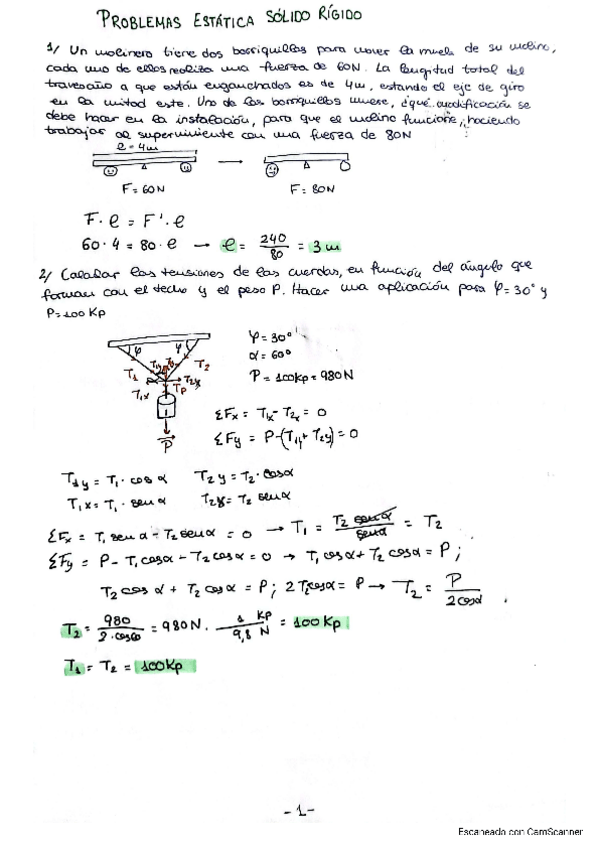 PROBLEMAS ESTÁTICA SÓLIDO RÍGIDO
1/ Un molinero tiene dos borriquillos para mover la muela de su molino,
cada uno de ellos realiza una fuerza de 60N. La longitud total del
travesaño a que están enganchados es de 4m, estando el eje de giro
en la mitad este. Uno de los borriquillos muere, ¿qué modificación se
debe hacer en la instalación, para que el molino funcione, haciendo
trabajar al superviviente con una fuerza de 80N
l = 4m
F = 60N F = 80N
F · l = F' · l
60 · 4 = 80 · l → l = 240/80 = 3 m
2/ Calcular las tensiones de las cuerdas, en función del ángulo que
forman con el techo y el peso P. Hacer una aplicación para φ = 30° y
P = 100 Kp
φ φ
T1 T1y T2y T2
T1x T2x
TP
P
φ = 30°
α = 60°
P = 100Kp = 980N
ΣFx = T1x - T2x = 0
ΣFy = P-(T1y+T2y) = 0
T1y = T1 · cos α T2y = T2 · cosα
T1x = T1 · sen α T2x = T2 senα
ΣFx = T1 sen α - T2 sen α = 0 → T1 = T2 senα / senα = T2
ΣFy = P - T1 cosα - T2 cos α = 0 → T1 cosα + T2 cosα = P ;
T2 cos α + T2 cos α = P ; 2 T2 cosα = P → T2 = P / 2cosα
T2 = 980 / 2·cos60 = 980N · 1 KP / 9,8 N = 100Kp
T1 = T2 = 100Kp
-1-
Escaneado con CamScanner